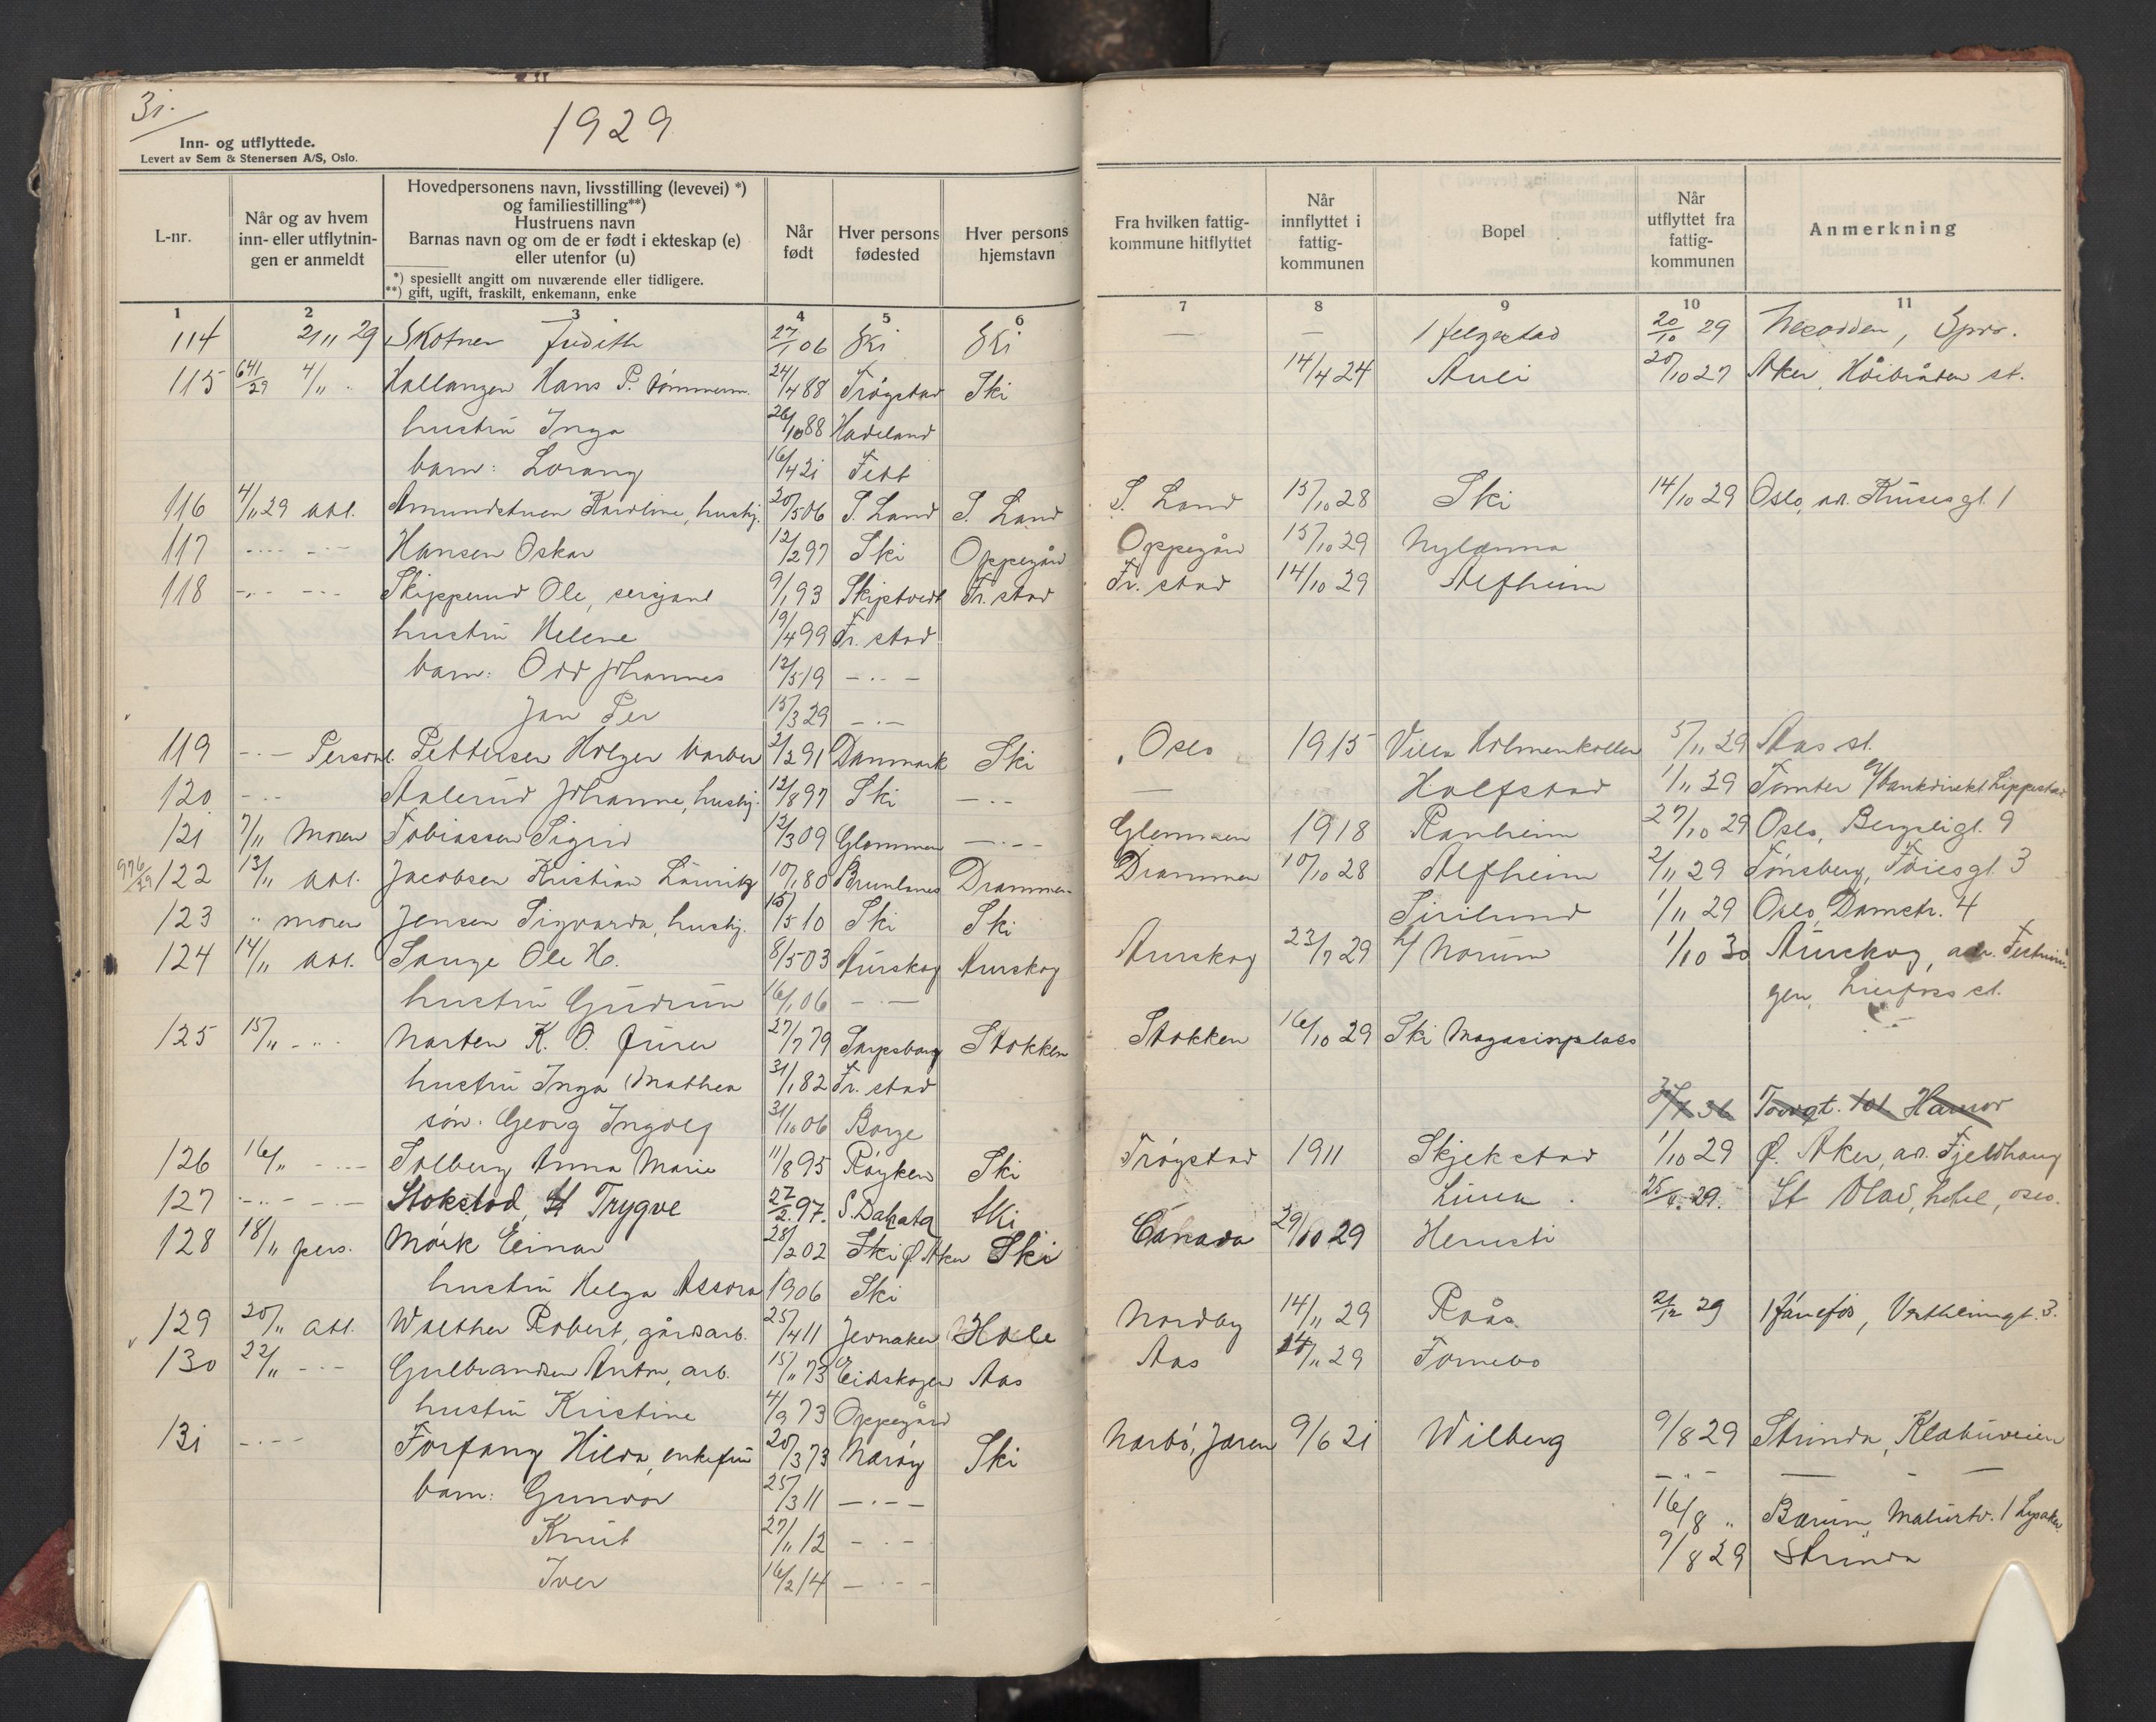 31.
1929
Inn- og utflyttede.
Levert av Sem & Stenersen A/S, Oslo.
L-nr.
Når og av hvem inn- eller utflytnin- gen er anmeldt
Hovedpersonens navn, livsstilling (levevei) *)
og familiestilling**)
Hustruens navn
Barnas navn og om de er født i ekteskap (e)
eller utenfor (u)
*) spesiellt angitt om nuværende eller tidligere.
**) gift, ugift, fraskilt, enkemann, enke
Når født
Hver persons fødested
Hver persons hjemstavn
Fra hvilken fattig- kommune hitflyttet
Når innflyttet i fattig- kommunen
Bopel
Når utflyttet fra fattig- kommunen
Anmerkning
1 2 3 4 5 6 7 8 9 10 11
114 2/11 29 Skotner Judith 27/1 06 Ski Ski — — 20/10 29 Nesodden, Spro.
115 641/29 4/11 " Hallangen Hans P. tømmerm. 24/4 88 Trøgstad Ski 14/4 24 Auli 20/10 27 Aker, Høibråten st.
hustru Inga 26/10 88 Hadeland
barn: Lorang 16/4 21 Fett
116 4/11 29 adl. Amundstuen Karoline, hushj. 20/5 06 S. Land S. Land S. Land 15/10 28 Ski 14/10 29 Oslo, ad. Krusesgt. 1
117 -"- -"- Hansen Oskar 12/2 97 Ski Oppegård Oppegård 15/10 29 Nylænna
118 -"- -"- Skipperud Ole, sersjant 9/1 93 Skiptvedt Fr. stad Fr. stad 14/10 29 Alfheim
hustru Helene 19/4 99 Fr. stad
barn: Odd Johannes 12/5 19 -"-
Jan Per 15/3 29 -"-
119 -"- Personl. Pettersen Holger barber 2/2 91 Danmark Ski Oslo 1915 Villa Holmenkollen 5/11 29 Aas st.
120 -"- Aalerud Johanne, hushj. 12/8 97 Ski -"- — Holfstad 1/11 29 Tomter c/o bankdirekt Lippestad
121 7/11 Moren Tobiassen Sigrid 12/3 09 Glommen -"- Glemmen 1918 Ranheim 27/10 29 Oslo, Bergsligt. 9
976/29 122 13/11 adl. Jacobsen Kristian Lauritz 10/1 80 Brunlanes Drammen Drammen 10/10 28 Alfheim 2/11 29 Tønsberg, Føiesgt. 3
123 " moren Jensen Sigvarda, hushj. 15/5 10 Ski Ski Sirilund 1/11 29 Oslo, Damstr. 4
124 14/11 adl. Sange Ole H. 8/5 03 Aurskog Aurskog Aurskog 23/7 29 h/ Norum 1/10 30 Aurskog, adr.
hustru Gudrun 16/1 06 -"- gen, Lierfoss st.
125 15/11 -"- Narten K. O. Jürer 27/7 79 Sarpsborg Stokken Stokken 16/10 29 Ski Magasinplass
hustru Inga Mathea 31/1 82 Fr. stad
søn: Georg Ingolf 31/10 06 Borge Torvgt. 101 Hamar
126 16/11 -"- Solberg Anna Marie 11/8 95 Røyken Ski Trøgstad 1911 Skjekstad 1/10 29 Ø. Aker, ad. Fjeldhaug
127 -"- -"- Stokstad, H Trygve 27/2 97. S. Dakata Ski Linea 25/11. 29. St Olav, hotel, oslo.
128 18/11 pers. Mørk Einar 28/2 02 Ski Ø. Aker Ski Canada 29/10 29 Herusti
hustru Helga Assora 1906 Ski
129 20/11 adl. Walther Robert, gårdsarb. 25/4 11 Jevnaker Hole Nordby 14/11 29 Roås 21/12 29 Hønefos, Vestheimgt. 3.
130 22/11 -"- Gulbrandsen Anton, arb. 15/11 73 Eidskogen Aas Aas 14/11 29 Fornebo
hustru Kristine 4/9 73 Oppegård
131 -"- Forfang Hilda, enkefru 20/3 73 Nærøy Ski Narbø, Jæren 9/6 21 Wilberg 9/8 29 Strinda, Klæbuveien
barn: Gunvor 25/3 11 -"- -"- — — —
Knut 27/11 12 -"- 16/8 " Bærum, Malurtv. 1 Lysaker
Iver 16/2 14 -"- 9/8 29 Strinda